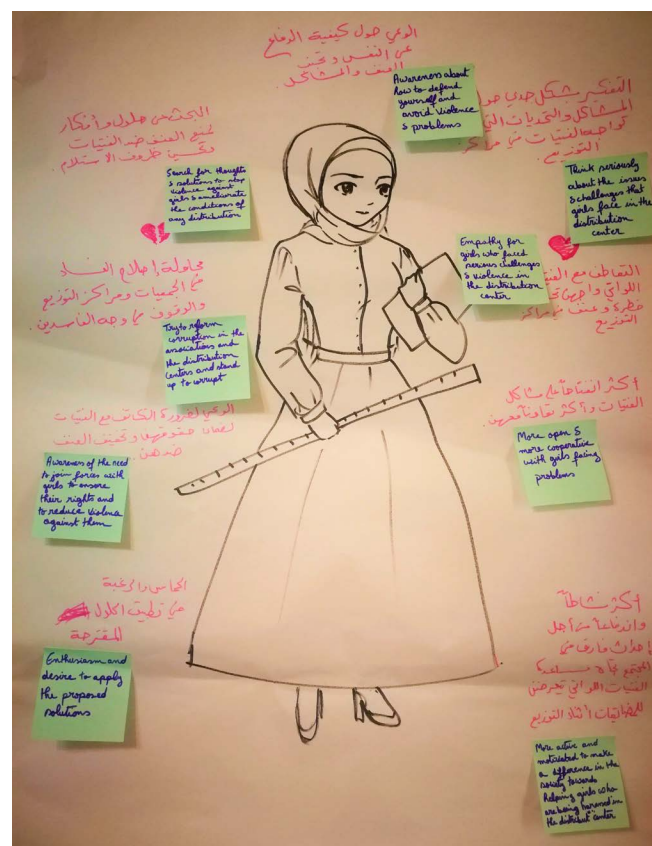 الوعي حول كيفية الدفاع
عن النفس و تجنب
العنف والمشاكل.
Awareness about
how to defend
yourself and
avoid violence
& problems
التفكير بشكل جدي حول
المشاكل والتحديات التي
تواجهها الفتيات في مراكز
التوزيع.
Think seriously
about the issues
& challenges that
girls face in the
distribution
center
البحث عن حلول وأفكار
لمنع العنف ضد الفتيات
وتحسين ظروف الاستلام.
Search for thoughts
& solutions to stop
violence against
girls & ameliorate
the conditions of
any distribution
Empathy for
girls who faced
serious challenges
& violence in
the distribution
center
التعاطف مع
اللواتي واجهن
خطرة وعنف في مراكز
التوزيع
محاولة إصلاح الفساد
في الجمعيات ومراكز التوزيع
والوقوف في وجه الفاسدين.
Try to reform
corruption in the
associations and
the distribution
centers and stand
up to corrupt
أكثر انفتاحاً على مشاكل
الفتيات و أكثر تعاوناً معهن.
More open &
more cooperative
with girls facing
problems
الوعي لضرورة التكاتف مع الفتيات
لضمان حقوقهن و تخفيف العنف
ضدهن.
Awareness of the need
to join forces with
girls to ensure
their rights and
to reduce violence
against them
الحماس والرغبة
في تطبيق الحلول
المقترحة
Enthusiasm and
desire to apply
the proposed
solutions
أكثر نشاطاً
واندفاعاً من أجل
إحداث فارق في
المجتمع
الفتيات اللواتي تعرضن
للمضايقات أثناء التوزيع
More active and
motivated to make
a difference in the
society towards
helping girls who
are being harassed in
the distribut° center